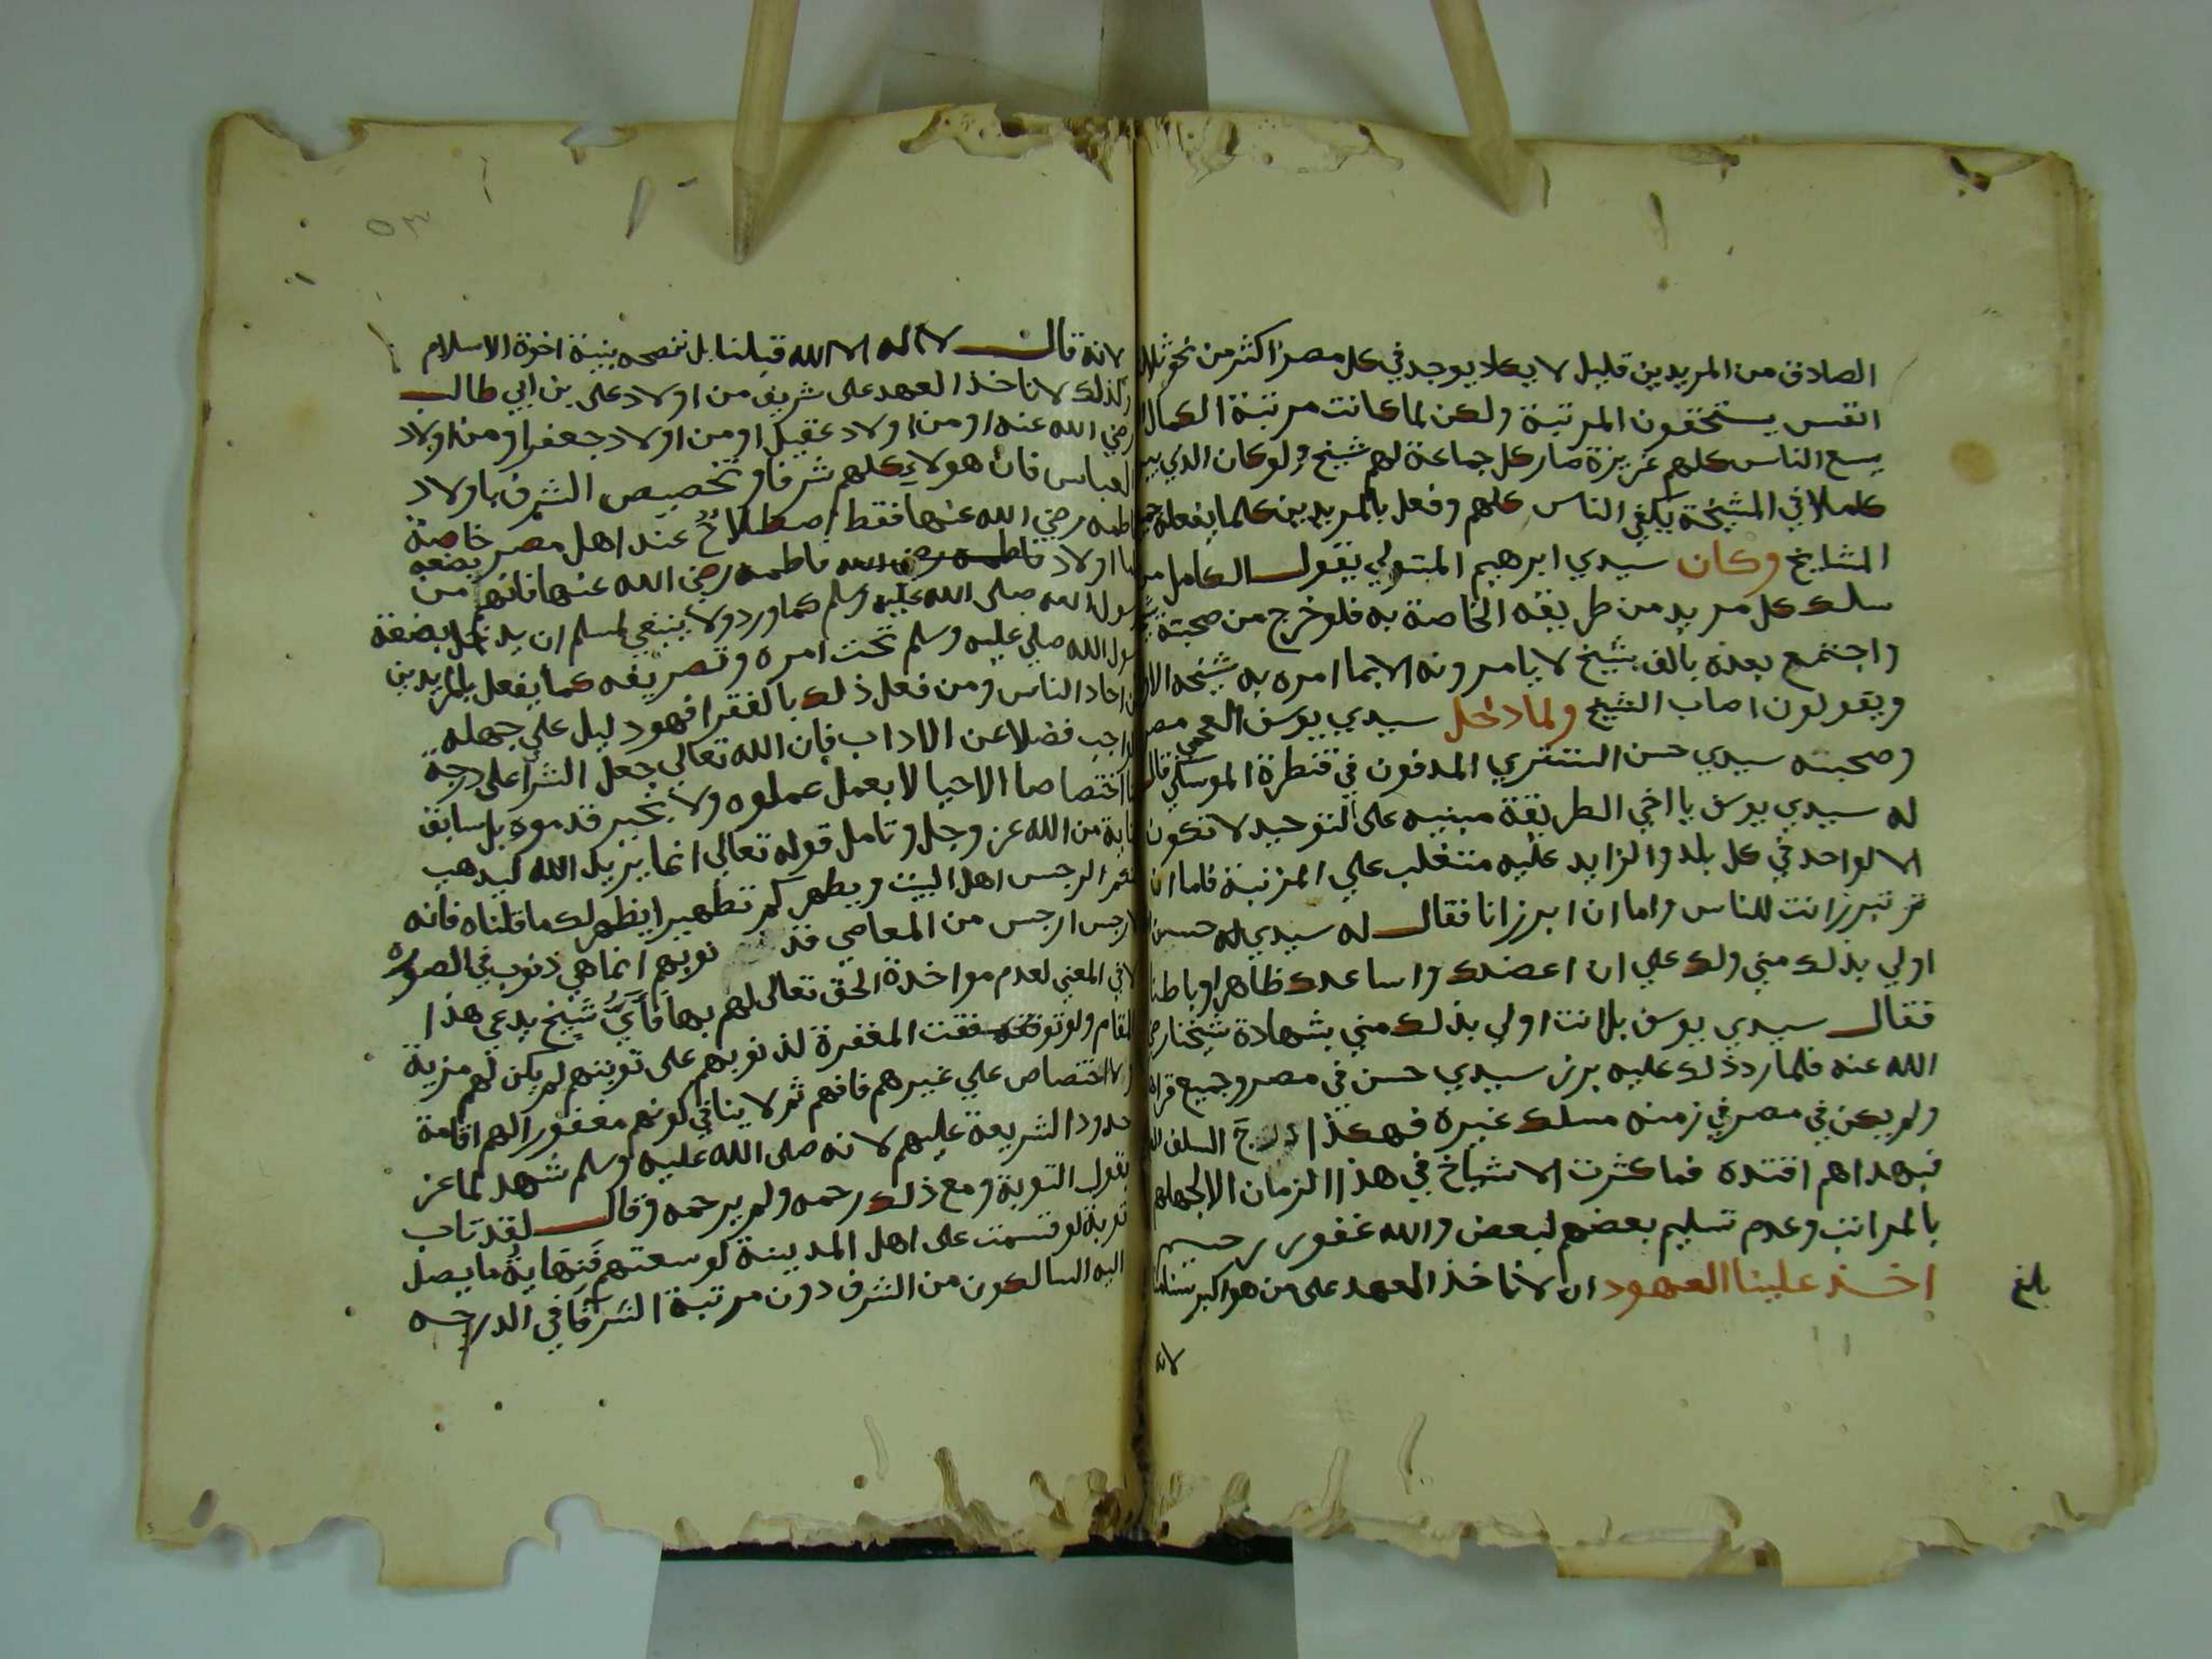 الصادق من المريدين قليل لا يكاد يوجد في كل مصر اكثر من نحو ثلاث
انفس يستحقون المرتبة ولكن لما كانت مرتبة الكمال
يسع الناس كلهم عزيزة صار كل جماعة لهم شيخ ولو كان الذي
كاملا في المشيخة يكفي الناس كلهم وفعل بالمريدين كلما يفعله
المشايخ وكان سيدي ابرهيم المتبولي يقول الكامل من
سلك كل مريد من طريقه الخاصة به فلو خرج من صحبته
واجتمع بعده بالف شيخ لا يامرونه الا بما امره به شيخه الاول
ويقولون اصاب الشيخ ولما دخل سيدي يوسف العجمي مصر
وصحبته سيدي حسن التستري المدفون في قنطرة الموسكي قال
له سيدي يوسف يا اخي الطريقة مبنيه على التوحيد لا تكون
الا لواحد في كل بلد والزايد عليه متغلب علي المرتبة فاما ان
تبرز انت للناس واما ان ابرز انا فقال له سيدي حسن
اولي بذلك مني ولك علي ان اعضدك واساعدك ظاهرا وباطنا
فقال سيدي يوسف بل انت اولي بذلك مني بشهادة شيخنا رضي
الله عنه فلما رد ذلك عليه برز سيدي حسن في مصر وجميع قراها
ولم يكن في مصر في زمنه مسلك غيره فهكذا درج السلف
فبهداهم اقتده فما كثرت الاشياخ في هذا الزمان الا لجهلهم
بالمراتب وعدم تسليم بعضهم لبعض والله غفور رحيم
اخذ علينا العهود ان لا ناخذ العهد على من هو اكبر
بلغ
لانه
٥٣
لانه قال لا اله الا الله قبلنا بل ننصحه بنية اخوة الاسلام
وكذلك لا ناخذ العهد على شريف من اولاد علي بن ابي طالب
رضي الله عنه او من اولاد عقيل او من اولاد جعفر او من اولاد
العباس فان هولاء كلهم شرفا وتخصيص الشرف باولاد
فاطمه رضي الله عنها فقط اصطلاح عند اهل مصر خاصة
اولاد فاطمه رضي الله عنها فانهم بضعه من
رسول الله صلى الله عليه وسلم كما ورد ولا ينبغي لمسلم ان يدخل بضعة
رسول الله صلي عليه وسلم تحت امره وتصريفه كما يفعل بالمريدين
من احاد الناس ومن فعل ذلك بالفقرا فهو دليل علي جهله
بالواجب فضلا عن الاداب فان الله تعالي جعل الشرا على درجة
اختصاصا الاهيا لا بعمل عملوه ولا بخير قدموه بل سابق
عناية من الله عز وجل وتامل قوله تعالي انما يريد الله ليذهب
عنكم الرجس اهل البيت ويطهركم تطهيرا يظهر لك ما قلناه فانه
لا رجس ارجس من المعاصي فذنوبهم انما هي ذنوب في الصورة
لا في المعني لعدم مواخذة الحق تعالى لهم بها فاي شيخ يدعي هذا
المقام ولو توقفت المغفرة لذنوبهم على توبتهم لم يكن لهم مزية
ولا اختصاص علي غيرهم فافهم ثم لا ينافي كونهم مغفورا لهم اقامة
حدود الشريعة عليهم لانه صلى الله عليه وسلم شهد لماعز
بقبول التوبة ومع ذلك رحمه ولم يرحمه وقال لقد تاب
توبة لو قسمت على اهل المدينة لوسعتهم فنهاية ما يصل
اليه السالكون من الشرف دون مرتبة الشرفا في الدرجه